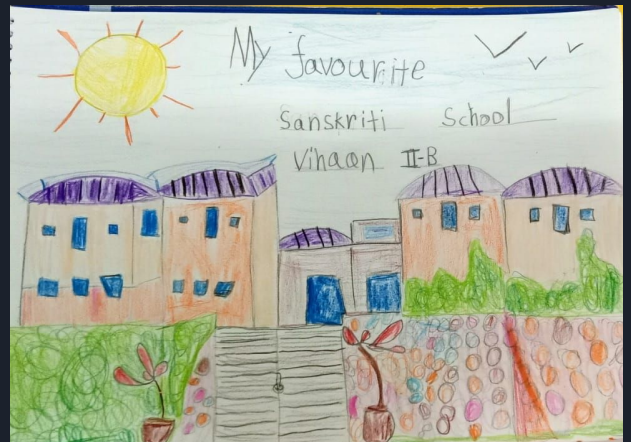 My favourite
Sanskriti School
Vihaan II-B